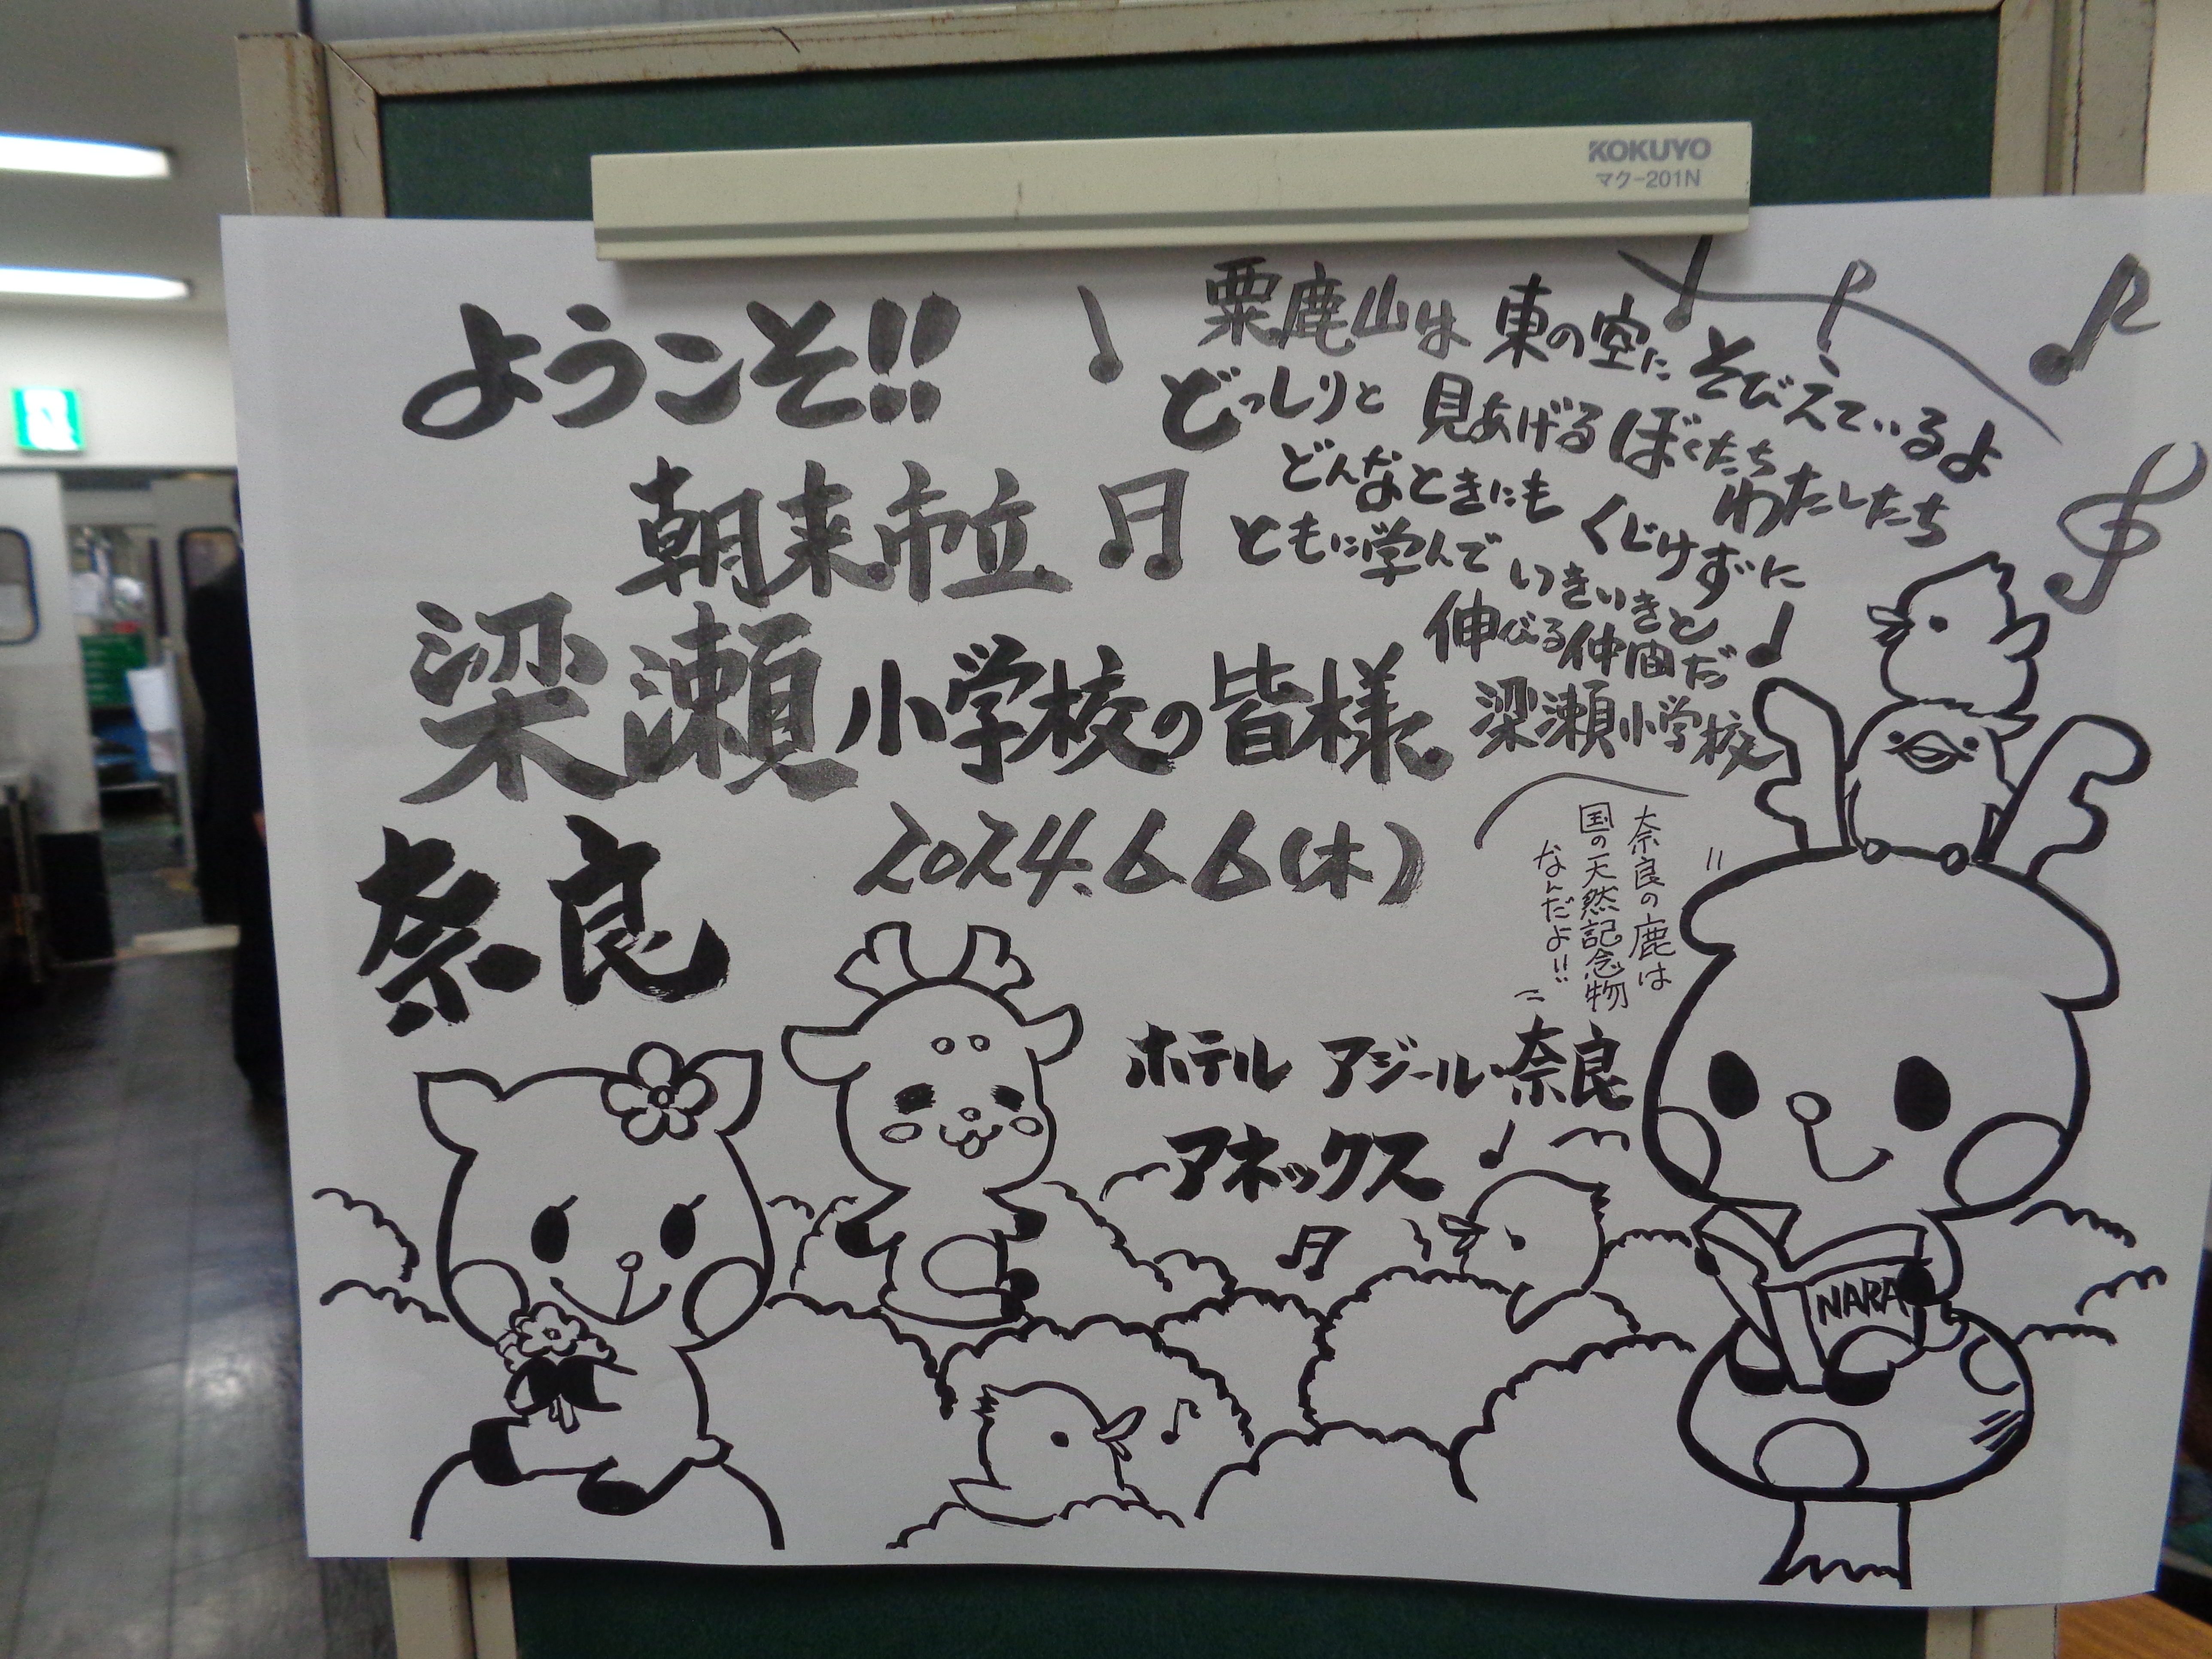 KOKUYO
マク-201N
ようこそ!!
朝来市立
梁瀬小学校の皆様
2024.6.6(木)
奈良
粟鹿山は 東の空に そびえているよ
どっしりと 見あげる ぼくたち わたしたち
どんなときにも くじけずに
ともに学んで いきいきと
伸べる仲間だ
梁瀬小学校
奈良の鹿は
国の天然記念物
なんだよ!!
ホテル アジール・奈良
アネックス
NARA